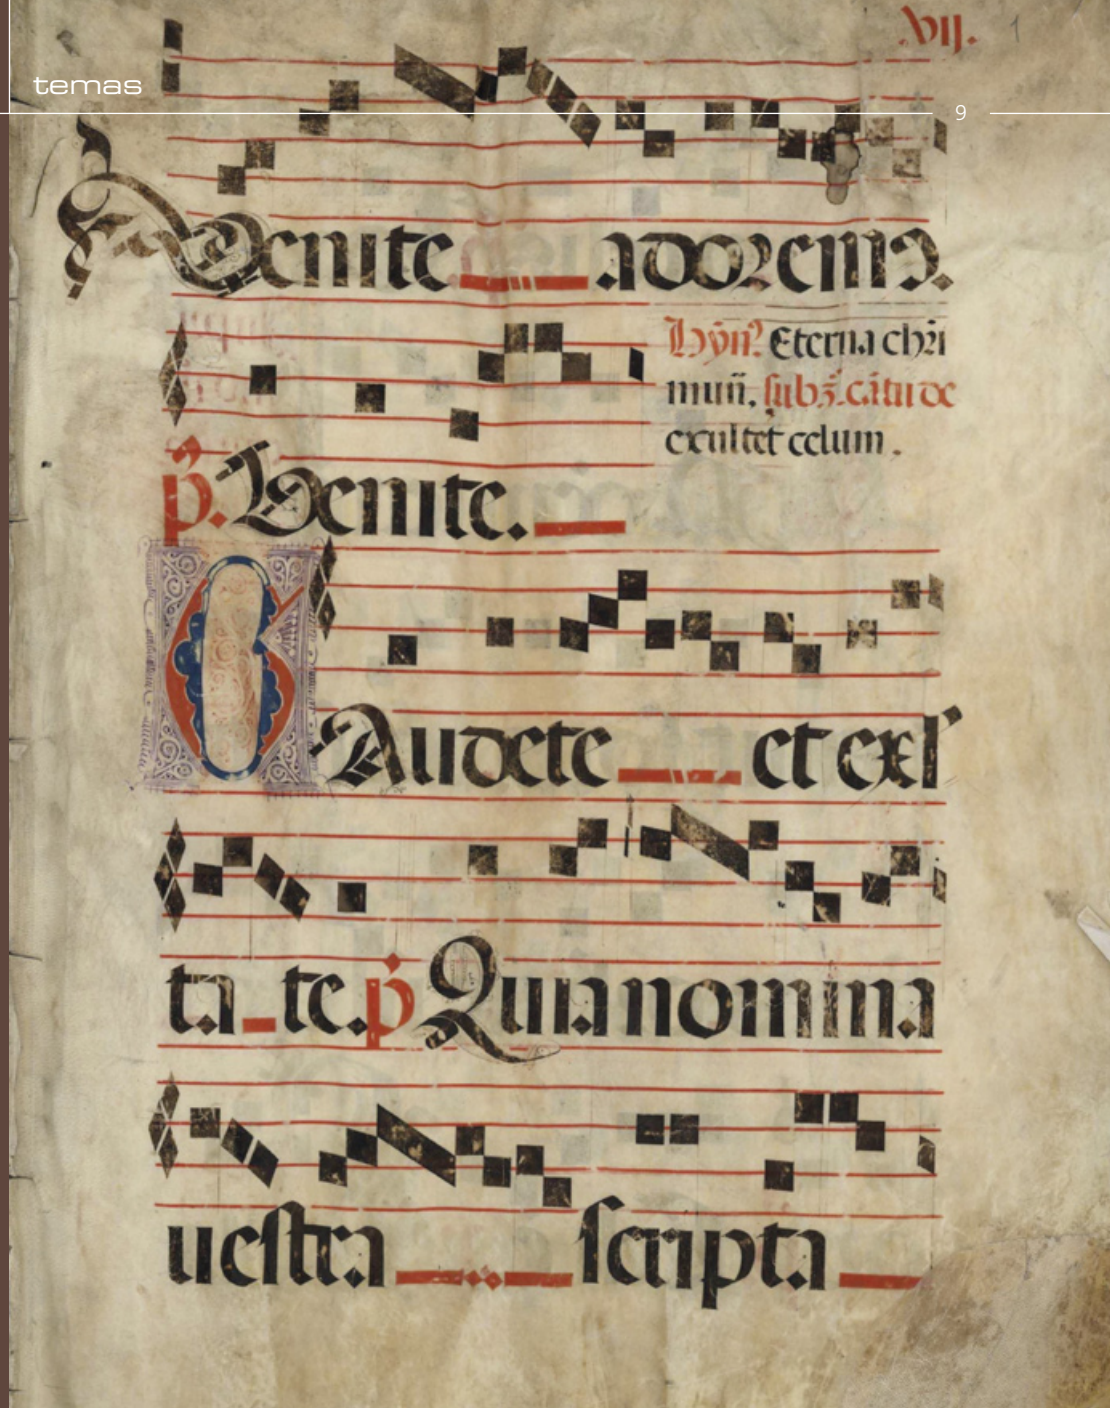 .vij. 1
temas
9
Venite adorem9.
Hȳn9 Eterna chr̄i
muñ. subz̄. cātu de
exultet celum.
p̄. Venite.
GAudete et exl'
ta-te. p̄ Quia nomina
uestra scripta